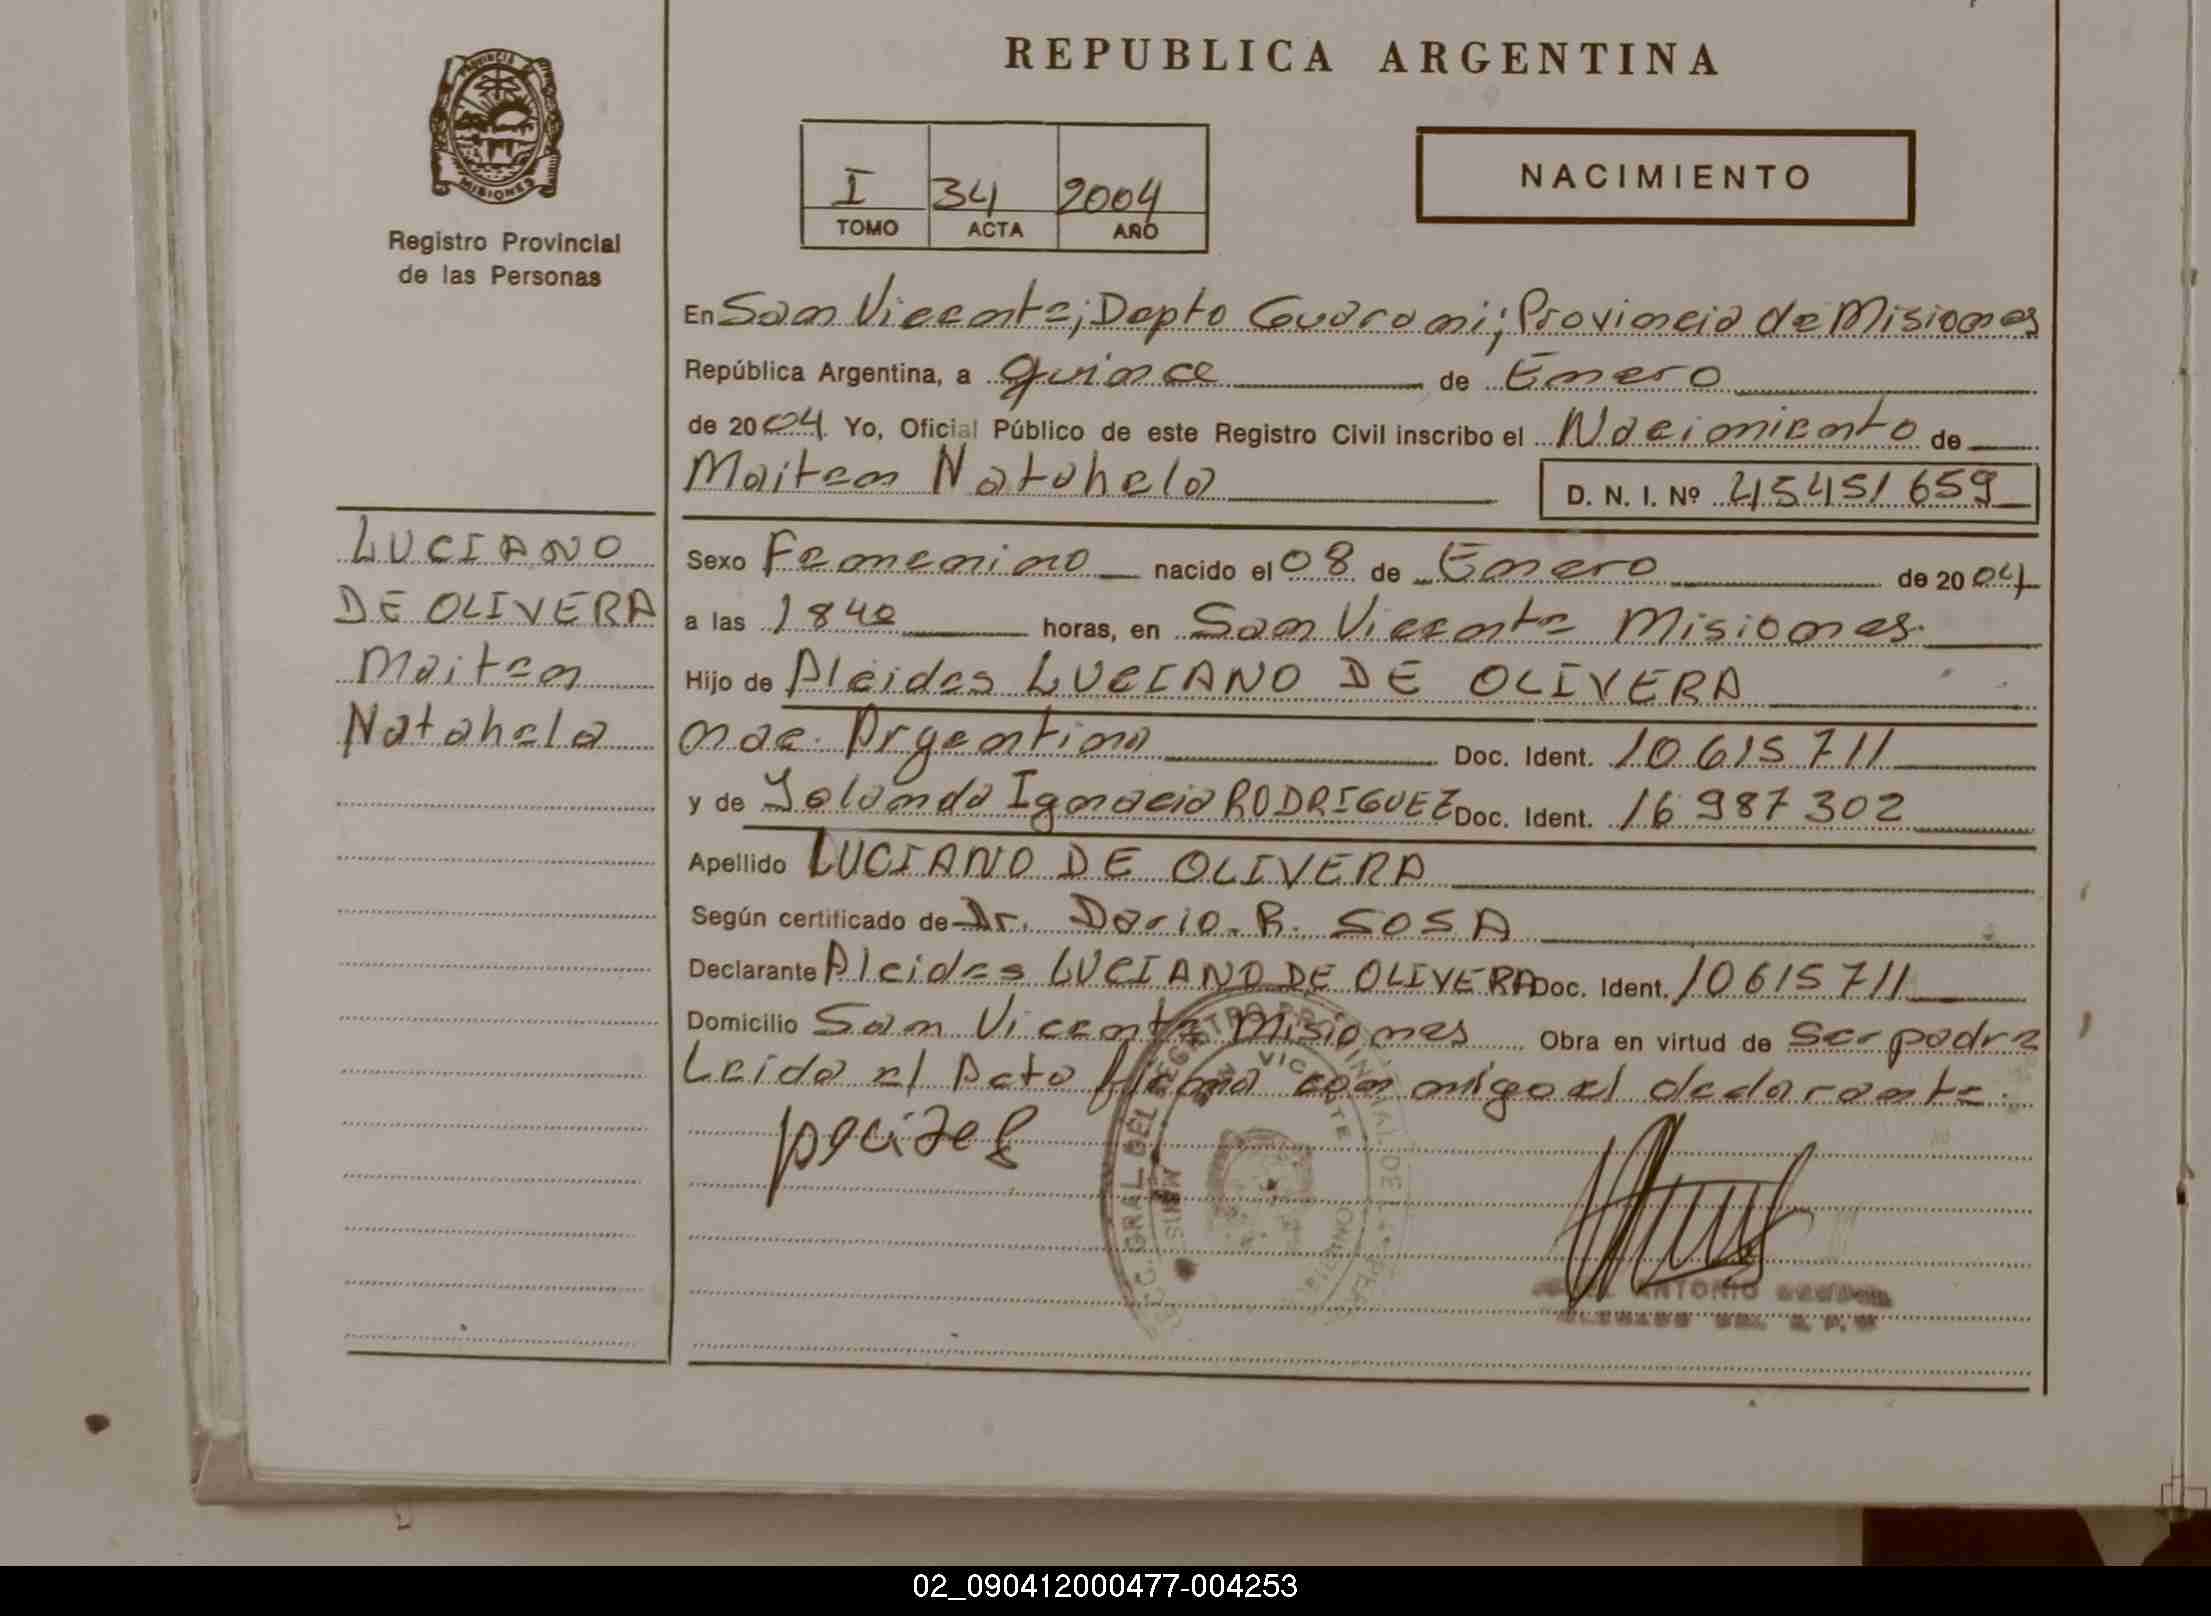 REPUBLICA ARGENTINA
PROVINCIA
MISIONES
Registro Provincial
de las Personas
I 34 2004
TOMO ACTA AÑO
NACIMIENTO
En San Vicente; Depto Guarani; Provincia de Misiones
República Argentina, a quince de Enero
de 2004. Yo, Oficial Público de este Registro Civil inscribo el Nacimiento de
Maiten Natahela D. N. I. Nº 45451659
LUCIANO
DE OLIVERA
Maiten
Natahela
Sexo Femenino nacido el 08 de Enero de 2004
a las 1840 horas, en San Vicente Misiones.
Hijo de Alcides LUCIANO DE OLIVERA
nac. Argentina Doc. Ident. 10615711
y de Iolanda Ignacia RODRIGUEZ Doc. Ident. 16987302
Apellido LUCIANO DE OLIVERA
Según certificado de Dr. Dario R. SOSA
Declarante Alcides LUCIANO DE OLIVERA Doc. Ident. 10615711
Domicilio San Vicente Misiones Obra en virtud de ser padre
Leida el Acta firma con migo el declarante.
GRAL DEL REGISTRO PROVINCIAL DE
VICENTE
ANTONIO
02_090412000477-004253